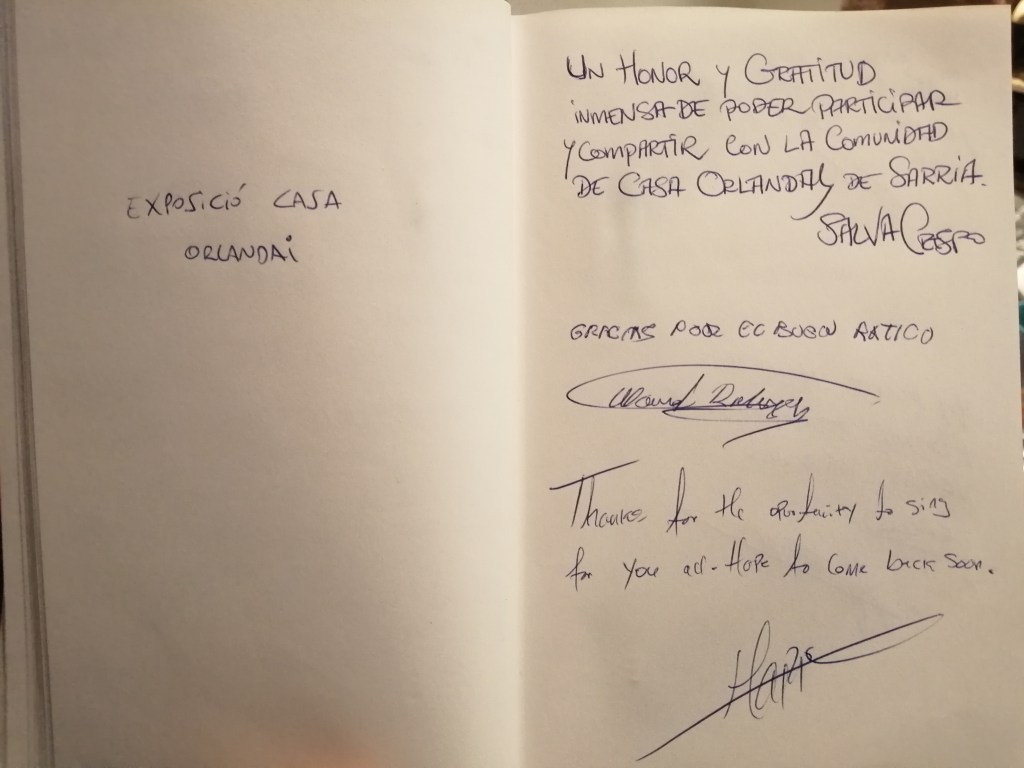 EXPOSICIÓ CASA
ORLANDAI
UN HONOR Y GRATITUD
INMENSA DE PODER PARTICIPAR
Y COMPARTIR CON LA COMUNIDAD
DE CASA ORLANDAY DE SARRIA.
SALVA CRESPO
GRACIAS POR EL BUSON
Thanks for the oportunity to sing
for you all. Hope to come back soon.